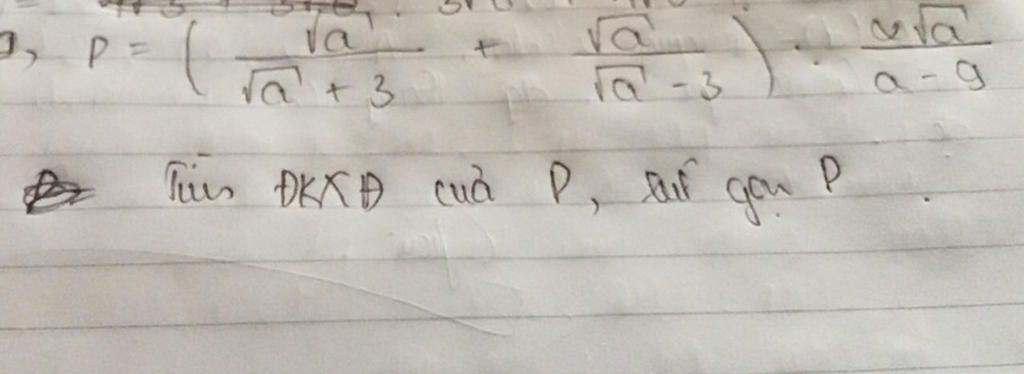 P = ( √a / √a + 3 + √a / √a - 3 ) : √a / a - 9
Tìm ĐKXĐ của P, rút gọn P.